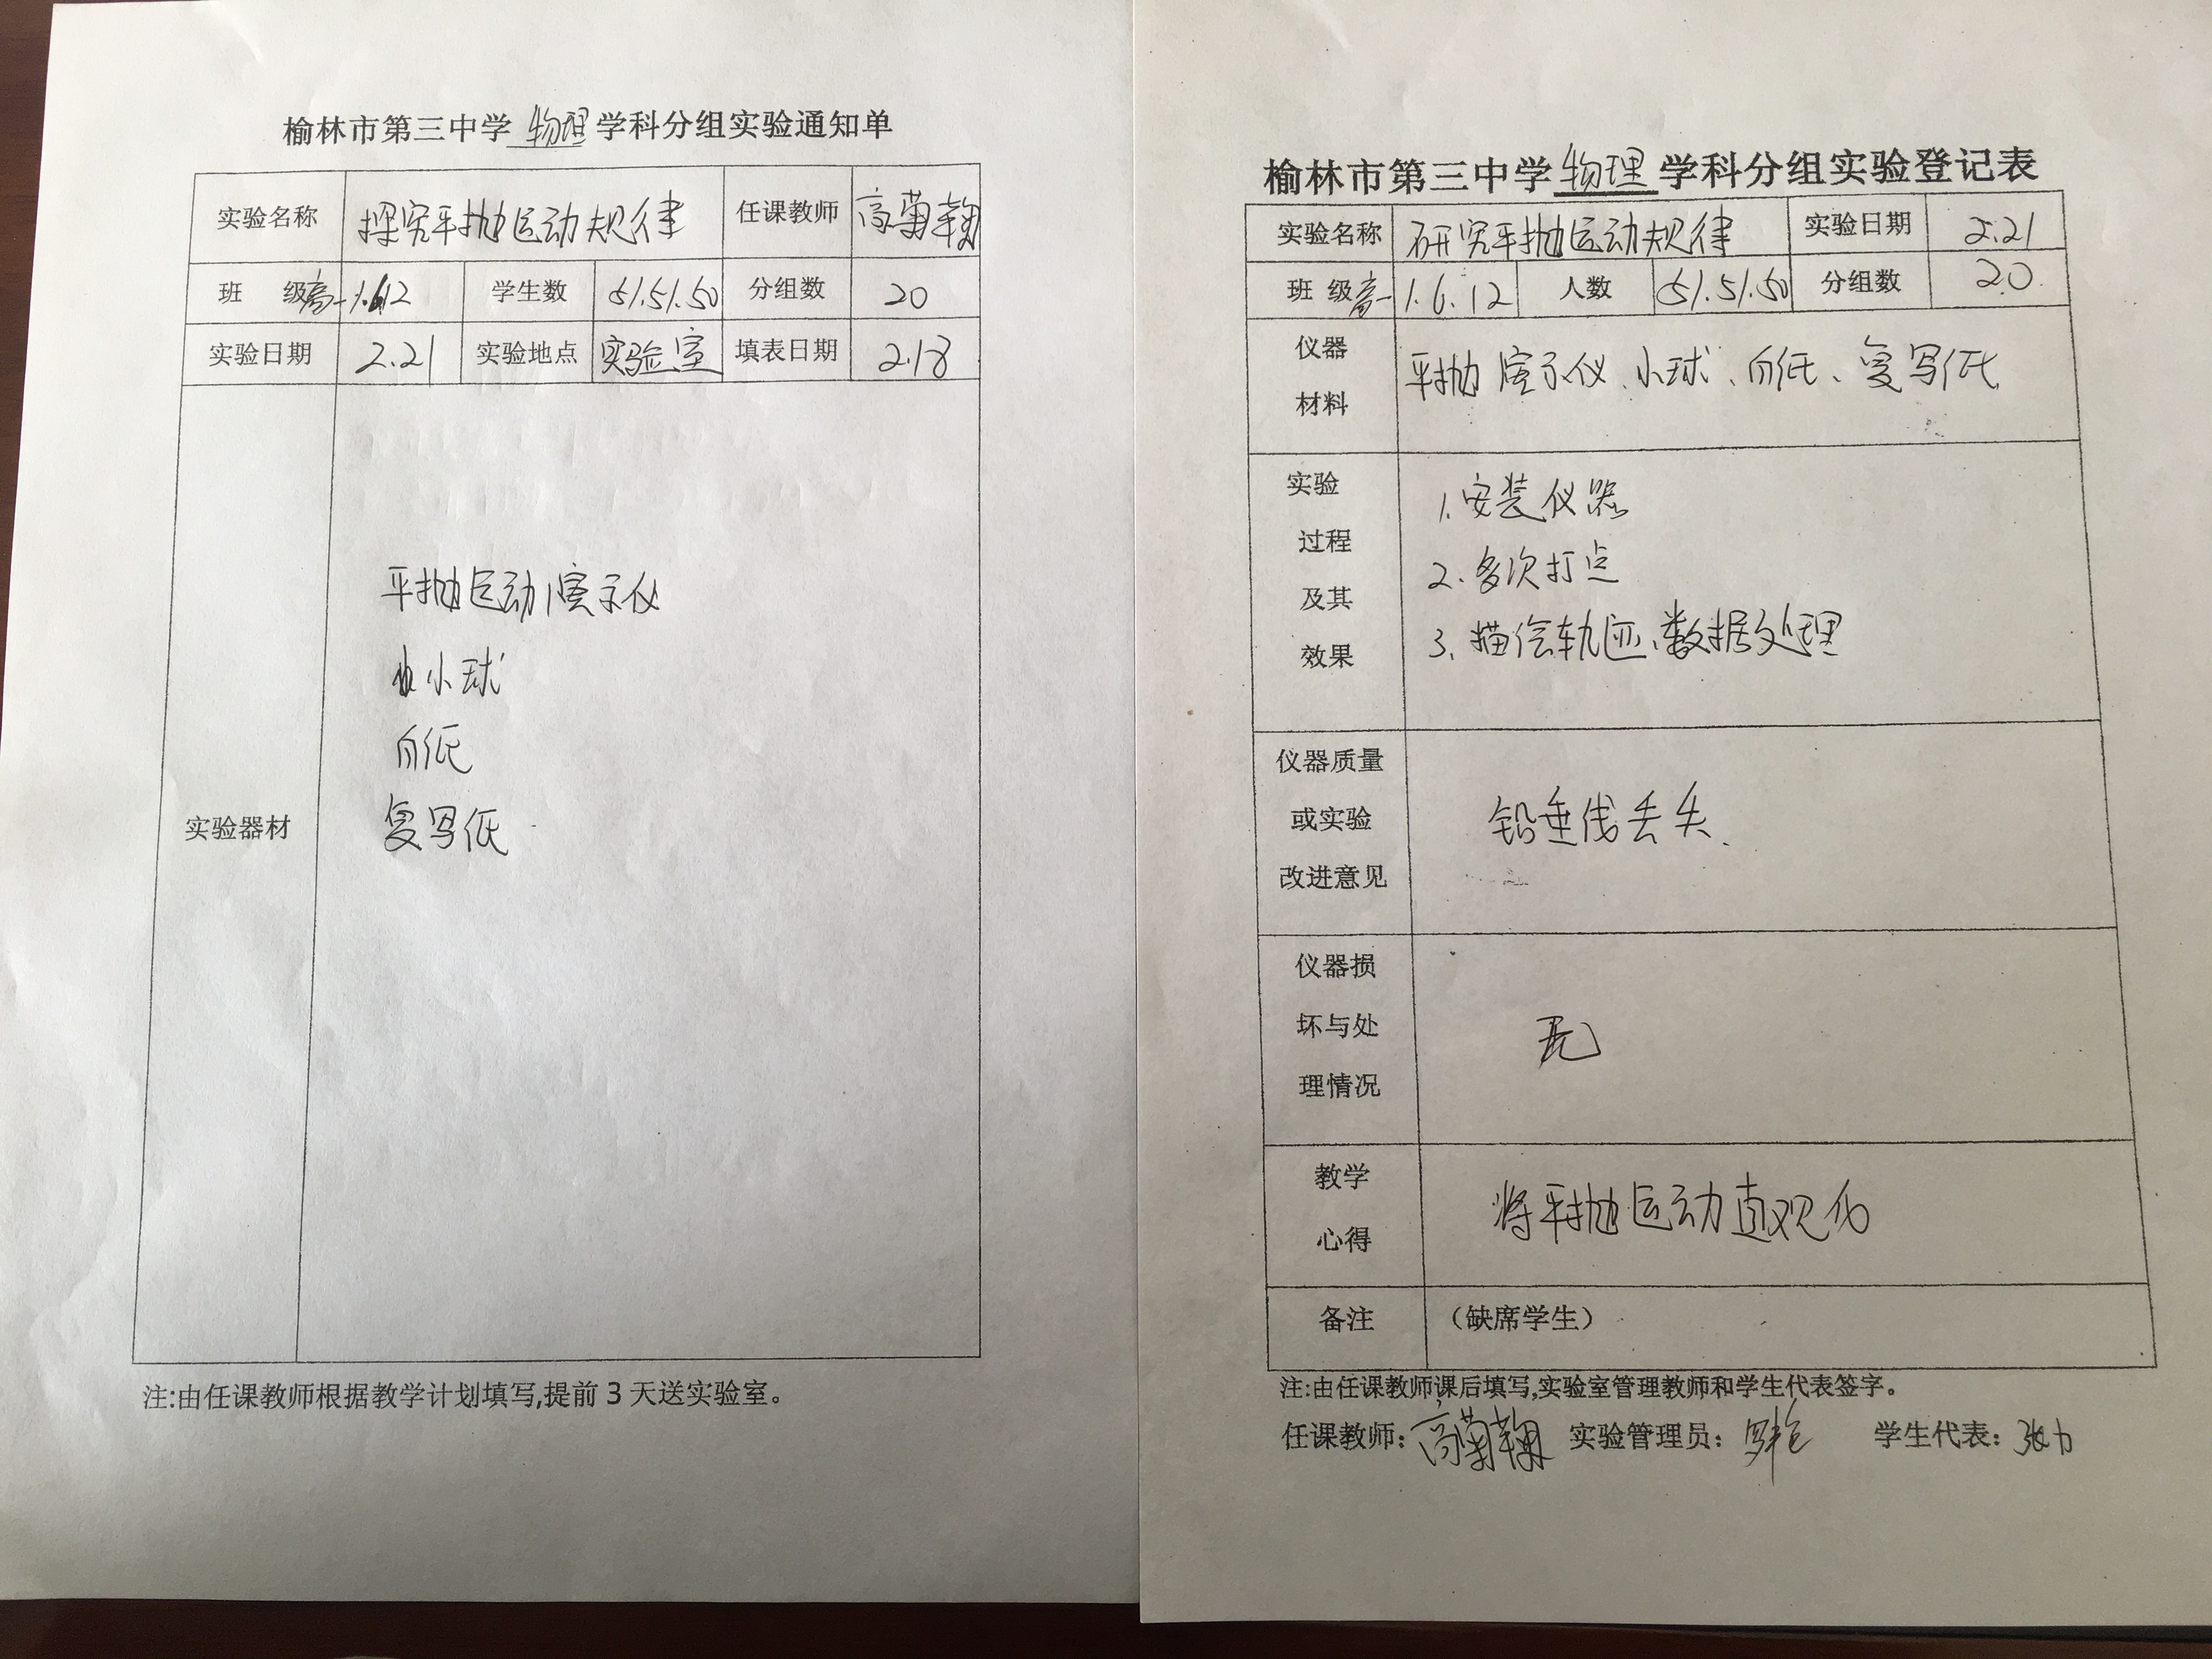 榆林市第三中学 物理 学科分组实验通知单
实验名称 探究平抛运动规律 任课教师 高菊鞠
班 级 高一 1.6.12 学生数 51.51.50 分组数 20
实验日期 2.21 实验地点 实验室 填表日期 2.18
平抛运动演示仪
小球
白纸
复写纸
实验器材
注:由任课教师根据教学计划填写,提前3天送实验室。
榆林市第三中学 物理 学科分组实验登记表
实验名称 研究平抛运动规律 实验日期 2.21
班 级 高一 1.6.12 人数 51.51.50 分组数 20
仪器
材料
平抛演示仪、小球、白纸、复写纸
实验
过程
及其
效果
1.安装仪器
2.多次打点
3.描绘轨迹、数据处理
仪器质量
或实验
改进意见
铅垂线丢失
仪器损
坏与处
理情况
无
教学
心得
将平抛运动直观化
备注 (缺席学生)
注:由任课教师课后填写,实验室管理教师和学生代表签字。
任课教师: 高菊鞠 实验管理员: 学生代表: 张力